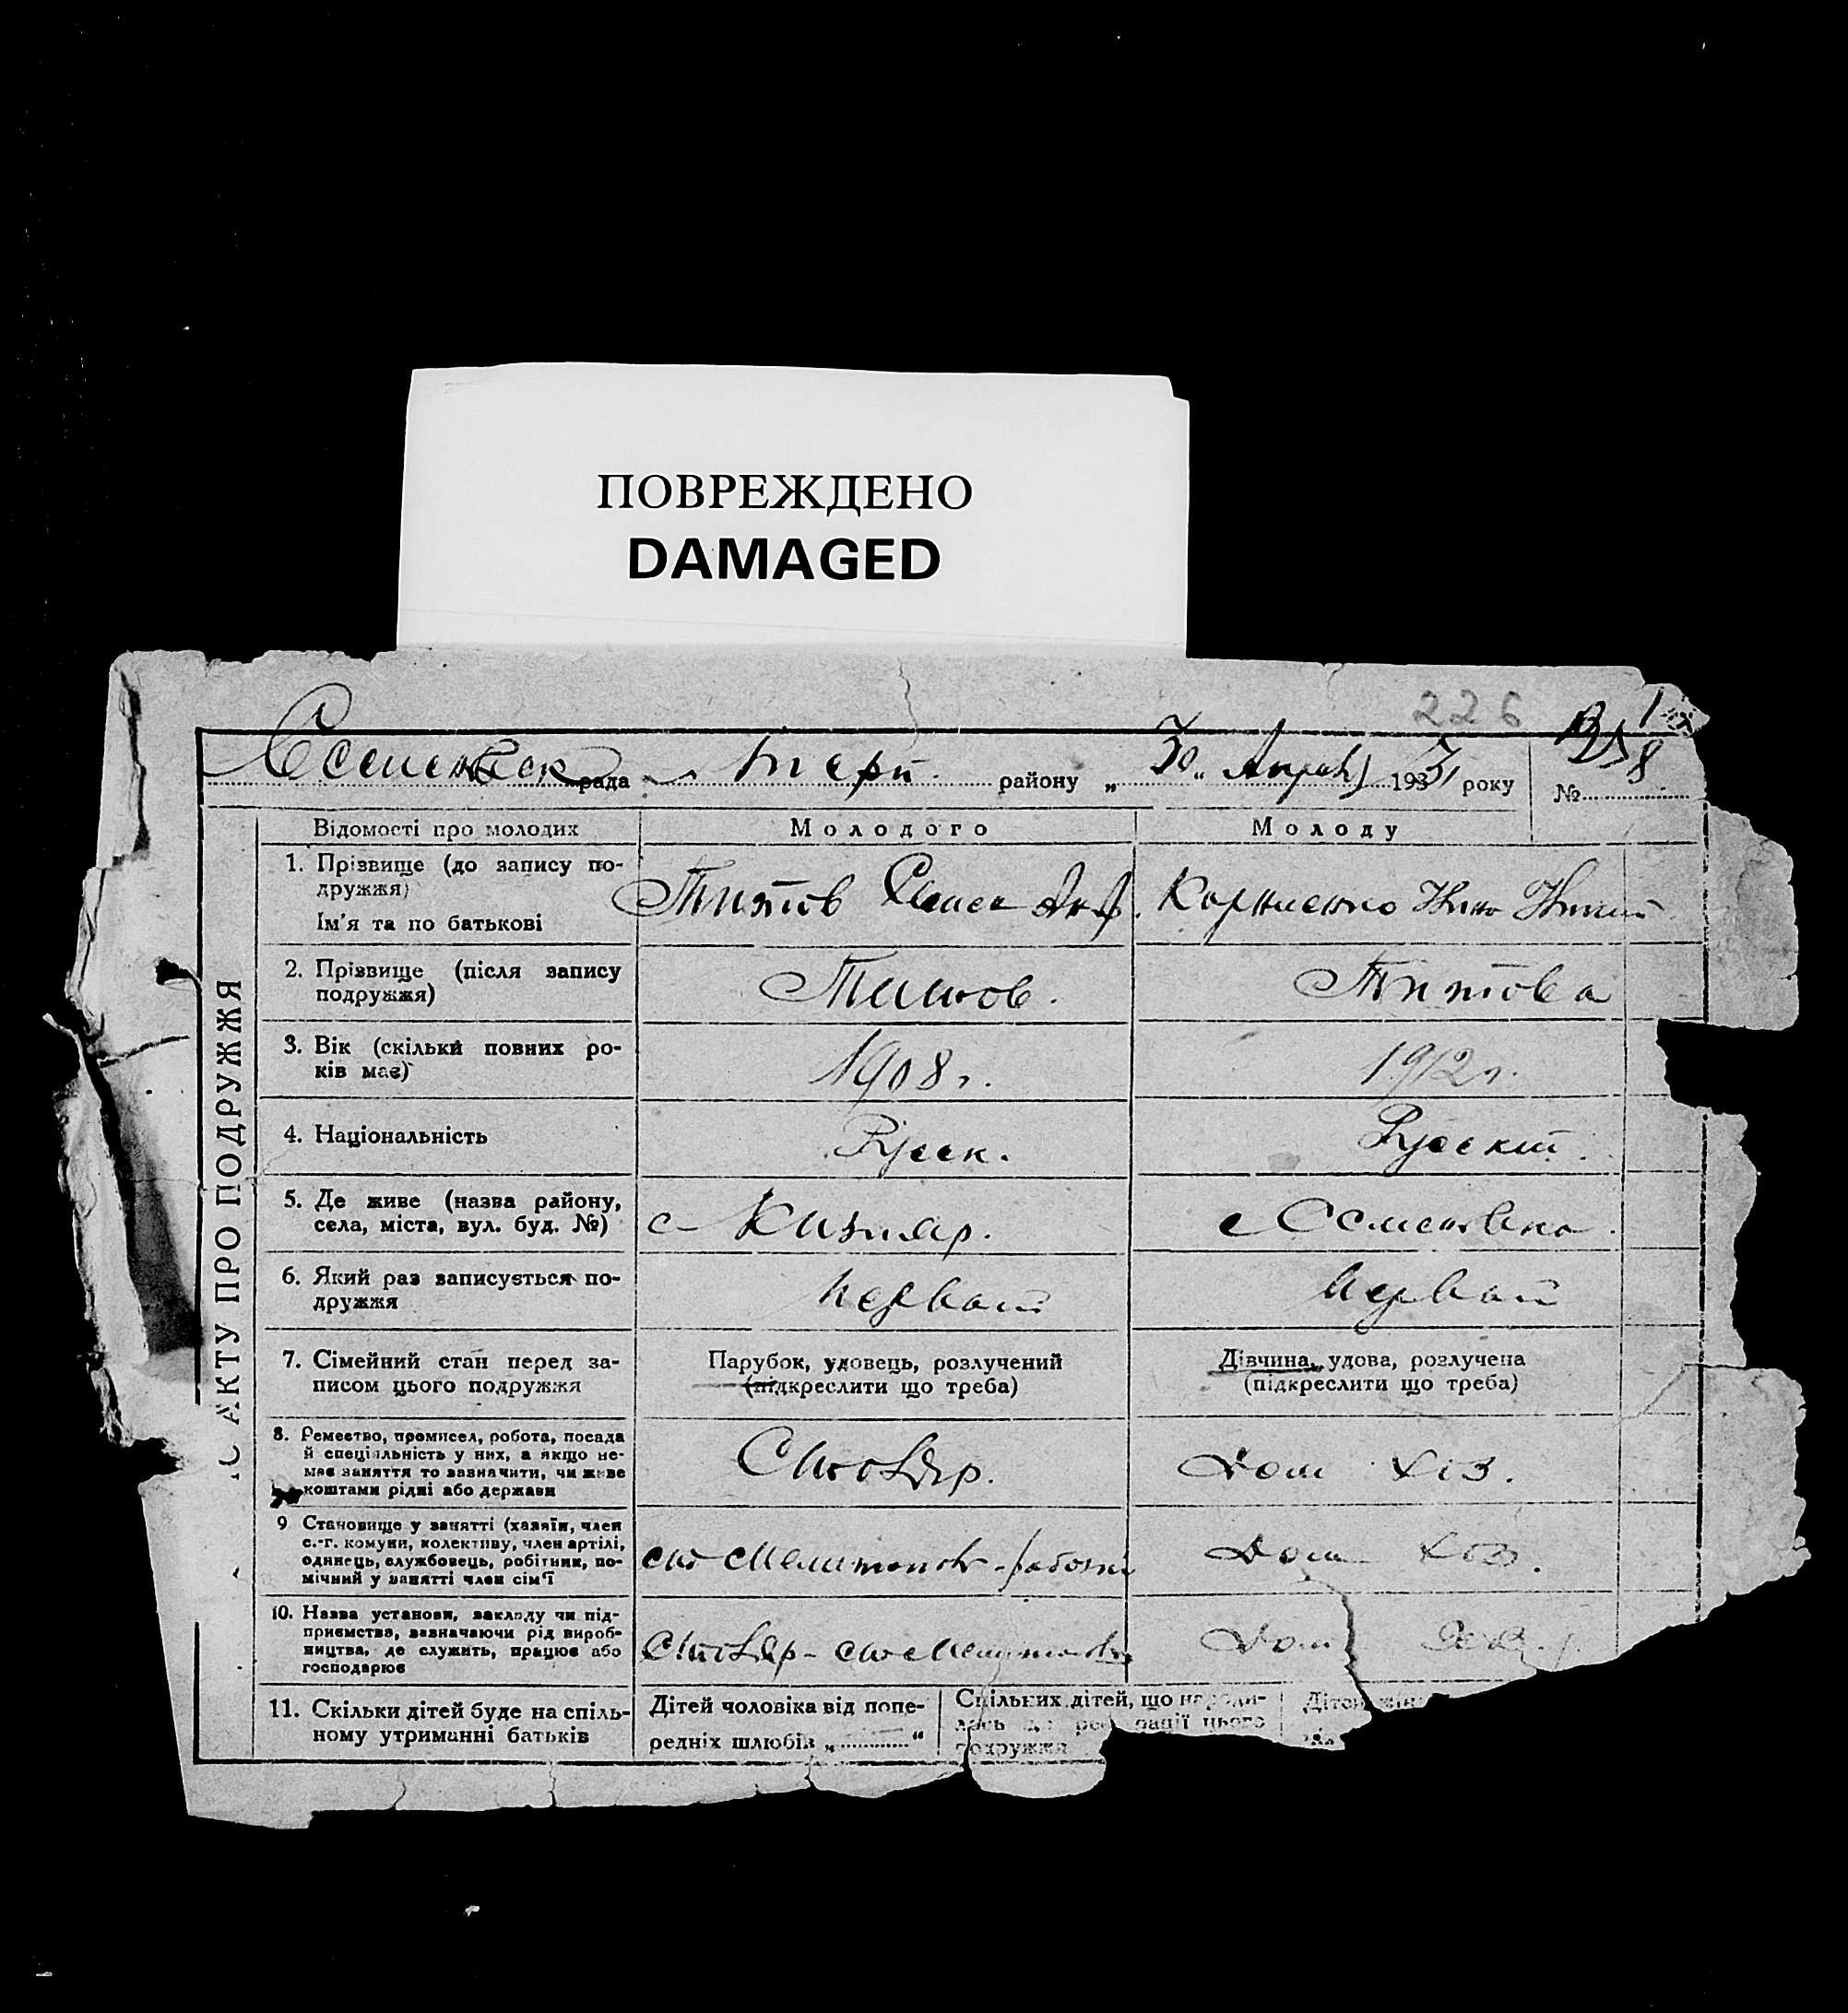 ПОВРЕЖДЕНО
DAMAGED
226
рада району „ 30 „ 193 року № 8
АКТУ ПРО ПОДРУЖЖЯ
Відомості про молодих Молодого Молоду
1. Прізвище (до запису по-
дружжя)
Ім'я та по батькові
Титов Корниенко
2. Прізвище (після запису
подружжя)
Титов. Титова
3. Вік (скільки повних ро-
ків має)
1908 г. 1912 г.
4. Національність
Русск. Русский.
5. Де живе (назва району,
села, міста, вул. буд. №)
с Кизияр. с Семеновка.
6. Який раз записується по-
дружжя
первый первый
7. Сімейний стан перед за-
писом цього подружжя
Парубок, удовець, розлучений
(підкреслити що треба)
Дівчина, удова, розлучена
(підкреслити що треба)
8. Ремество, промисел, робота, посада
й спеціяльність у них, а якщо не-
має заняття то зазначити, чи живе
коштами рідні або держави
Столяр. Дом Хоз.
9 Становище у занятті (хазяїн, член
с.-г. комуни, колективу, член артілі,
одинець, службовець, робітник, по-
мічний у занятті член сім'ї
ст Мелитополь - Дом Хоз.
10. Назва установи, закладу чи під-
приємства, зазначаючи рід вироб-
ництва, де служить, працює або
господарює
Столяр - ст Дом
11. Скільки дітей буде на спіль-
ному утриманні батьків
Дітей чоловіка від попе-
редніх шлюбів „ “
Спільних дітей, що народи-
лась цього
подружжя